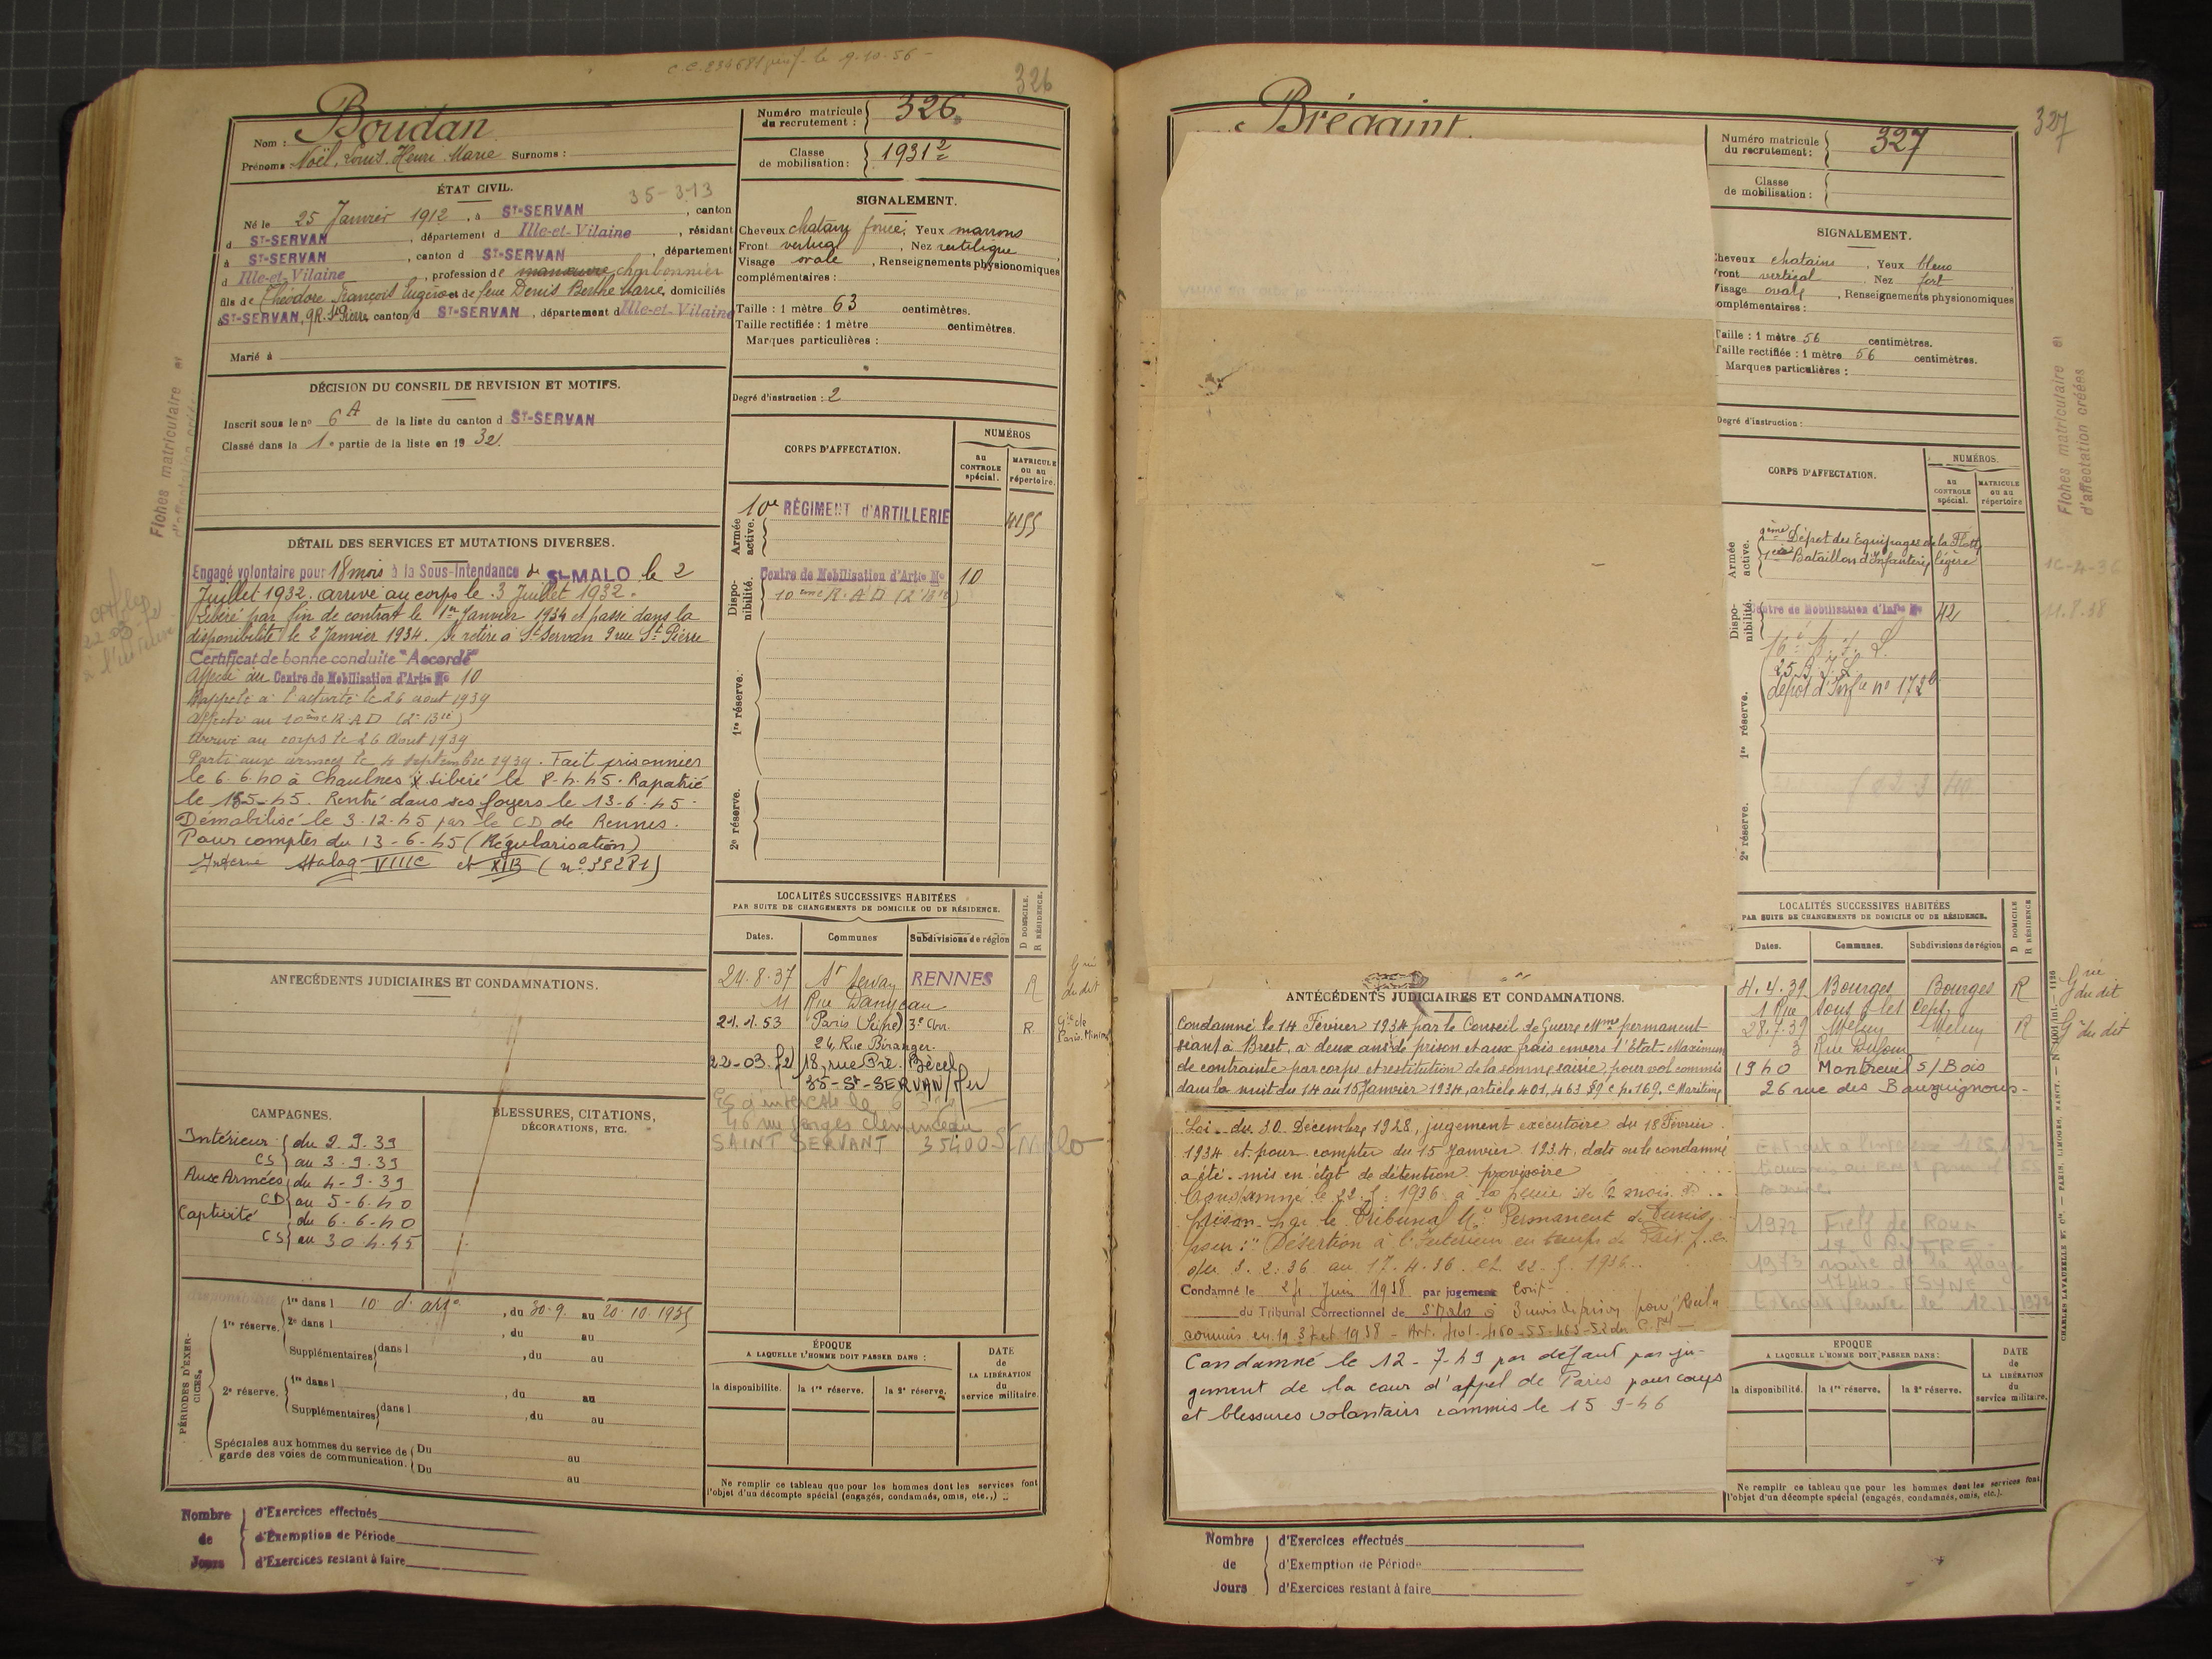 326
Nom : Boudan
Prénoms : Noël, Louis, Henri Marie Surnoms :
Numéro matricule du recrutement : 326
Classe de mobilisation : 1931 2
ÉTAT CIVIL.
35-313
Né le 25 Janvier 1912, à ST-SERVAN, canton
d ST-SERVAN, département d Ille-et-Vilaine, résidant
à ST-SERVAN, canton d ST-SERVAN, département
d Ille-et-Vilaine, profession de manœuvre charbonnier
fils de Théodore François Eugène et de feue Denis Berthe Marie, domiciliés
à ST-SERVAN, 9 R. St Pierre, canton d ST-SERVAN, département d Ille-et-Vilaine
Marié à
DÉCISION DU CONSEIL DE REVISION ET MOTIFS.
Inscrit sous le no 6 A de la liste du canton d ST-SERVAN
Classé dans la 1e partie de la liste en 19 32.
DÉTAIL DES SERVICES ET MUTATIONS DIVERSES.
Engagé volontaire pour 18 mois à la Sous-Intendance de St-MALO le 2
Juillet 1932. arrivé au corps le 3 Juillet 1932.
Libéré par fin de contrat le 1er Janvier 1934 et passé dans la
disponibilité le 2 Janvier 1934. Se retire à St-Servan 9 rue St Pierre
Certificat de bonne conduite "Accordé"
Affecté au Centre de Mobilisation d'Artie No 10
Rappelé à l'activité le 26 aout 1939
Affecté au 10ème R.A.D (2e Bie)
Arrivé au corps le 26 Aout 1939
Parti aux armées le 4 septembre 1939. Fait prisonnier
le 6.6.40 à Chaulnes x Libéré le 8-4-45. Rapatrié
le 15-5-45. Rentré dans ses foyers le 13-6-45.
Démobilisé le 3.12.45 par le CD de Rennes.
Pour compter du 13-6-45 (Régularisation)
Interné Stalag VIIIC et XIB (no 35281)
ANTÉCÉDENTS JUDICIAIRES ET CONDAMNATIONS.
CAMPAGNES.
Intérieur du 2.9.39
CS au 3.9.39
Aux Armées du 4-9-39
CD au 5-6-40
Captivité du 6-6-40
CS au 30.4.45
BLESSURES, CITATIONS, DÉCORATIONS, ETC.
PÉRIODES D'EXERCICES.
1re réserve. 1re dans l 10 d'artie, du 30.9 au 20.10.1935
2e dans l , du au
Supplémentaires dans l , du au
2e réserve. 1re dans l , du au
Supplémentaires dans l , du au
Spéciales aux hommes du service de garde des voies de communication. Du au
Du au
Nombre de Jours
d'Exercices effectués
d'Exemption de Période
d'Exercices restant à faire
SIGNALEMENT.
Cheveux chatain foncé, Yeux marrons
Front vertical, Nez rectiligne
Visage ovale, Renseignements physionomiques
complémentaires :
Taille : 1 mètre 63 centimètres.
Taille rectifiée : 1 mètre centimètres.
Marques particulières :
Degré d'instruction : 2
CORPS D'AFFECTATION.
NUMÉROS
au CONTROLE spécial.
MATRICULE ou au répertoire.
Armée active. 10e RÉGIMENT d'ARTILLERIE 4255
Disponibilité. Centre de Mobilisation d'Artie No 10
10ème R.A.D (2e Bie)
1re réserve.
2e réserve.
LOCALITÉS SUCCESSIVES HABITÉES
PAR SUITE DE CHANGEMENTS DE DOMICILE OU DE RÉSIDENCE.
Dates. Communes Subdivisions de région D DOMICILE. R RÉSIDENCE.
24.8.37 St Servan RENNES R
11 Rue Danycan
21.1.53 Paris (Seine) 3e Arr. R.
24, Rue Béranger.
22-03.72 18, rue Pré-Bécel
35-St-SERVAN
46 rue Georges Clemenceau
SAINT SERVANT 35400 St Malo
ÉPOQUE
A LAQUELLE L'HOMME DOIT PASSER DANS :
la disponibilité. la 1re réserve. la 2e réserve.
DATE de LA LIBÉRATION du service militaire.
Ne remplir ce tableau que pour les hommes dont les services font
l'objet d'un décompte spécial (engagés, condamnés, omis, etc.,)
Fiches matriculaire et d'affectation créées
327
Brégaint.
Numéro matricule du recrutement : 327
Classe de mobilisation :
SIGNALEMENT.
Cheveux chatains, Yeux bleus
Front vertical, Nez fort
Visage ovale, Renseignements physionomiques
complémentaires :
Taille : 1 mètre 56 centimètres.
Taille rectifiée : 1 mètre 56 centimètres.
Marques particulières :
Degré d'instruction :
CORPS D'AFFECTATION.
NUMÉROS.
au CONTROLE spécial.
MATRICULE ou au répertoire
Armée active. 2ème Dépot des Equipages de la Flotte
1er Bataillon d'Infanterie légère
16-4-36
Disponibilité. Centre de Mobilisation d'Infie No 42
11.8.38
16e B.I.L.
25 B.I.L
dépot d'Infie no 172
1re réserve.
2e réserve.
ANTÉCÉDENTS JUDICIAIRES ET CONDAMNATIONS.
Condamné le 14 Février 1934 par le Conseil de Guerre Mme permanent
séant à Brest, à deux ans de prison et aux frais envers l'Etat. Maximum
de contrainte par corps et restitution de la somme saisie, pour vol commis
dans la nuit du 14 au 15 Janvier 1934, article 401, 463 §9 c. p. 169. c Maritime
Loi du 30 Décembre 1928, jugement exécutoire du 18 Février
1934 et pour compter du 15 Janvier 1934, date où le condamné
a été mis en état de détention provisoire
Condamné le 22.5.1936 à la peine de 2 mois de
prison par le Tribunal Mre Permanent de Tunis
pour : "Désertion à l'Intérieur en temps de Paix"
du 3.2.36 au 17.4.36
Condamné le 24 Juin 1938 par jugement Cont.
du Tribunal Correctionnel de St Malo à 3 mois de prison pour Recel
commis en 1937 et 1938
Condamné le 12-7-49 par défaut par ju-
gement de la cour d'appel de Paris pour coups
et blessures volontairs commis le 15 9-46
LOCALITÉS SUCCESSIVES HABITÉES
PAR SUITE DE CHANGEMENTS DE DOMICILE OU DE RÉSIDENCE.
Dates. Communes. Subdivisions de région D DOMICILE R RÉSIDENCE
4.4.39 Bourges Bourges R Gie du dit
1 Rue sous les Ceps
28.7.39 Melun Melun R Gie du dit
3 Rue Dufour
1940 Montreuil s/Bois
26 rue des Bourguignons-
1972
1973
EPOQUE
A LAQUELLE L'HOMME DOIT PASSER DANS :
la disponibilité. la 1re réserve. la 2e réserve.
DATE de LA LIBÉRATION du service militaire.
Ne remplir ce tableau que pour les hommes dont les services font
l'objet d'un décompte spécial (engagés, condamnés, omis, etc.).
Nombre de Jours
d'Exercices effectués
d'Exemption de Période
d'Exercices restant à faire
Fiches matriculaire et d'affectation créées
CHARLES-LAVAUZELLE ET Cie. — PARIS, LIMOGES, NANCY.